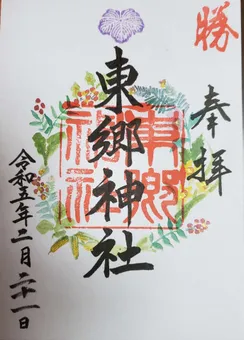 勝
奉拝
東郷神社
東郷
神社
令和五年二月二十一日